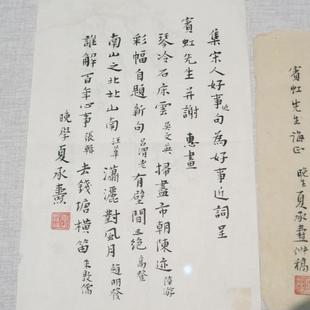 集宋人好事近句為好事近詞呈
賓虹先生并謝 惠畫
琴冷石床雲 吳文英 掃盡市朝陳迹 陸游
彩幅自題新句 呂渭老 有壁間三絕 高登
南山之北北山南 汪莘 瀟灑對風月 趙明發
誰解百年心事 張輯 去錢塘橫笛 朱敦儒
晚學夏承燾
賓虹先生誨正 晚生夏承燾艸稿